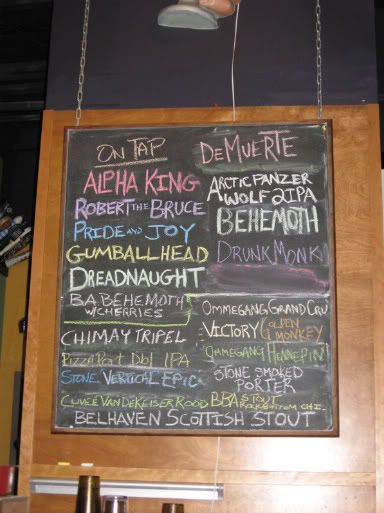 ON TAP
ALPHA KING
ROBERT THE BRUCE
PRIDE AND JOY
GUMBALLHEAD
DREADNAUGHT
BA BEHEMOTH
W/CHERRIES
CHIMAY TRIPEL
PIZZA PORT DBL IPA
STONE VERTICAL EPIC
CUVEE VAN DE KEISER ROOD
DEMUERTE
ARCTIC PANZER
WOLF 2IPA
BEHEMOTH
DRUNK MONK
OMMEGANG GRAND CRU
VICTORY GOLDEN
MONKEY
OMMEGANG HENNEPIN
STONE SMOKED
PORTER
BBA STOUT
CHI.
BELHAVEN SCOTTISH STOUT